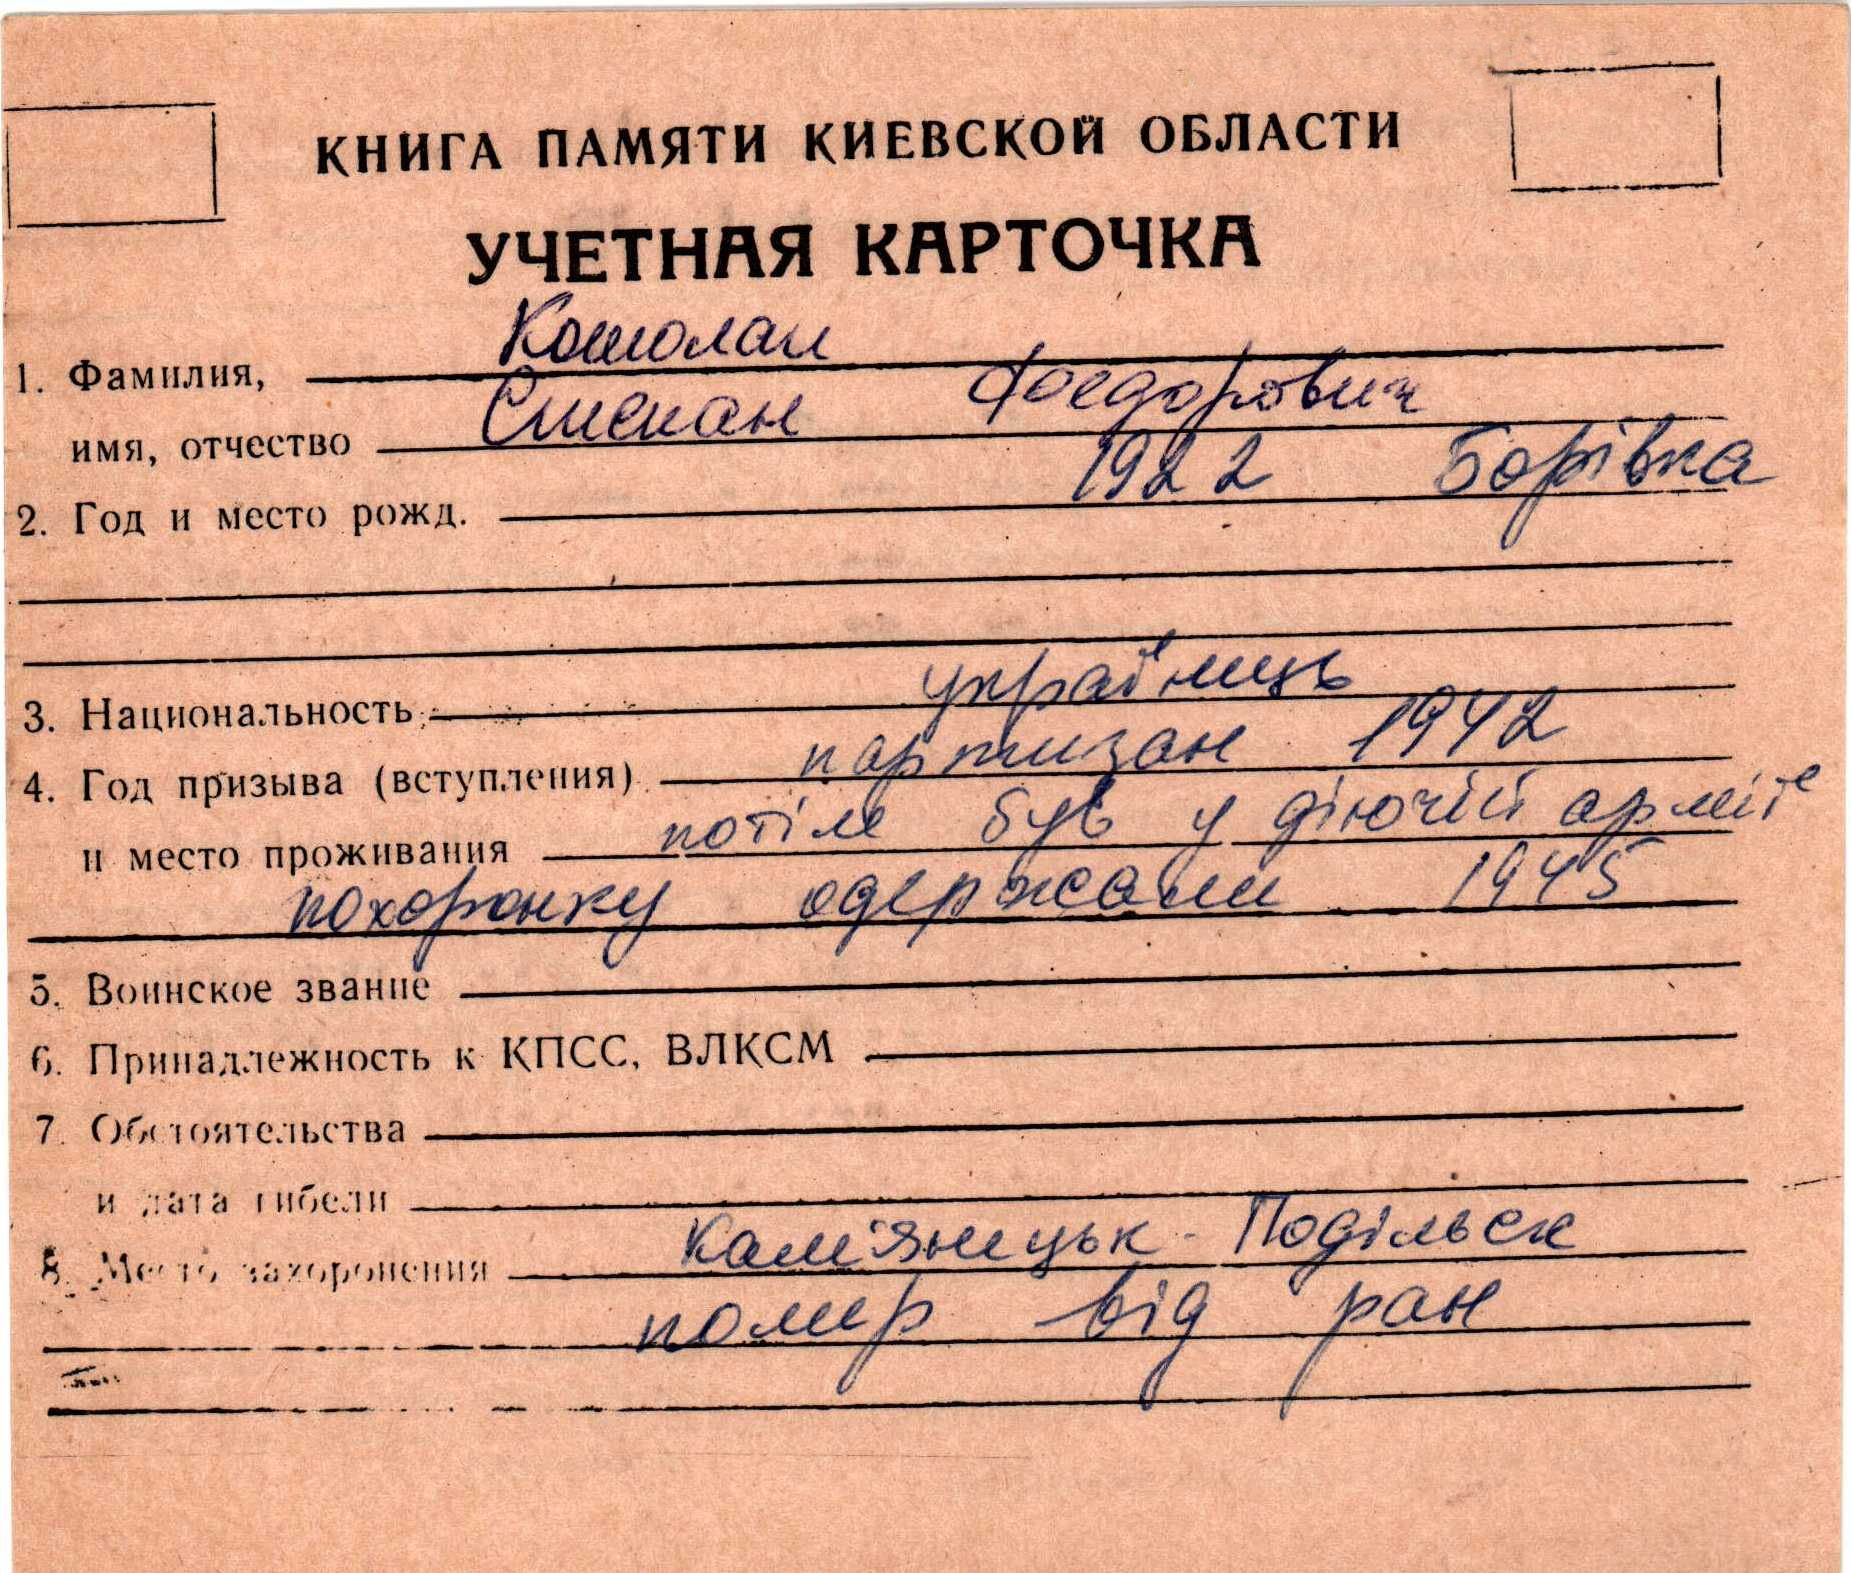 КНИГА ПАМЯТИ КИЕВСКОЙ ОБЛАСТИ
УЧЕТНАЯ КАРТОЧКА
1. Фамилия, Кошолап
имя, отчество Степан Федорович
2. Год и место рожд. 1922 Борівка
3. Национальность українець
4. Год призыва (вступления) партизан 1942
и место проживания потім був у діючій армії
похоронку одержали 1945
5. Воинское звание
6. Принадлежность к КПСС, ВЛКСМ
7. Обстоятельства
и дата гибели
8. Место захоронения Кам'янецьк-Подільск
помер від ран